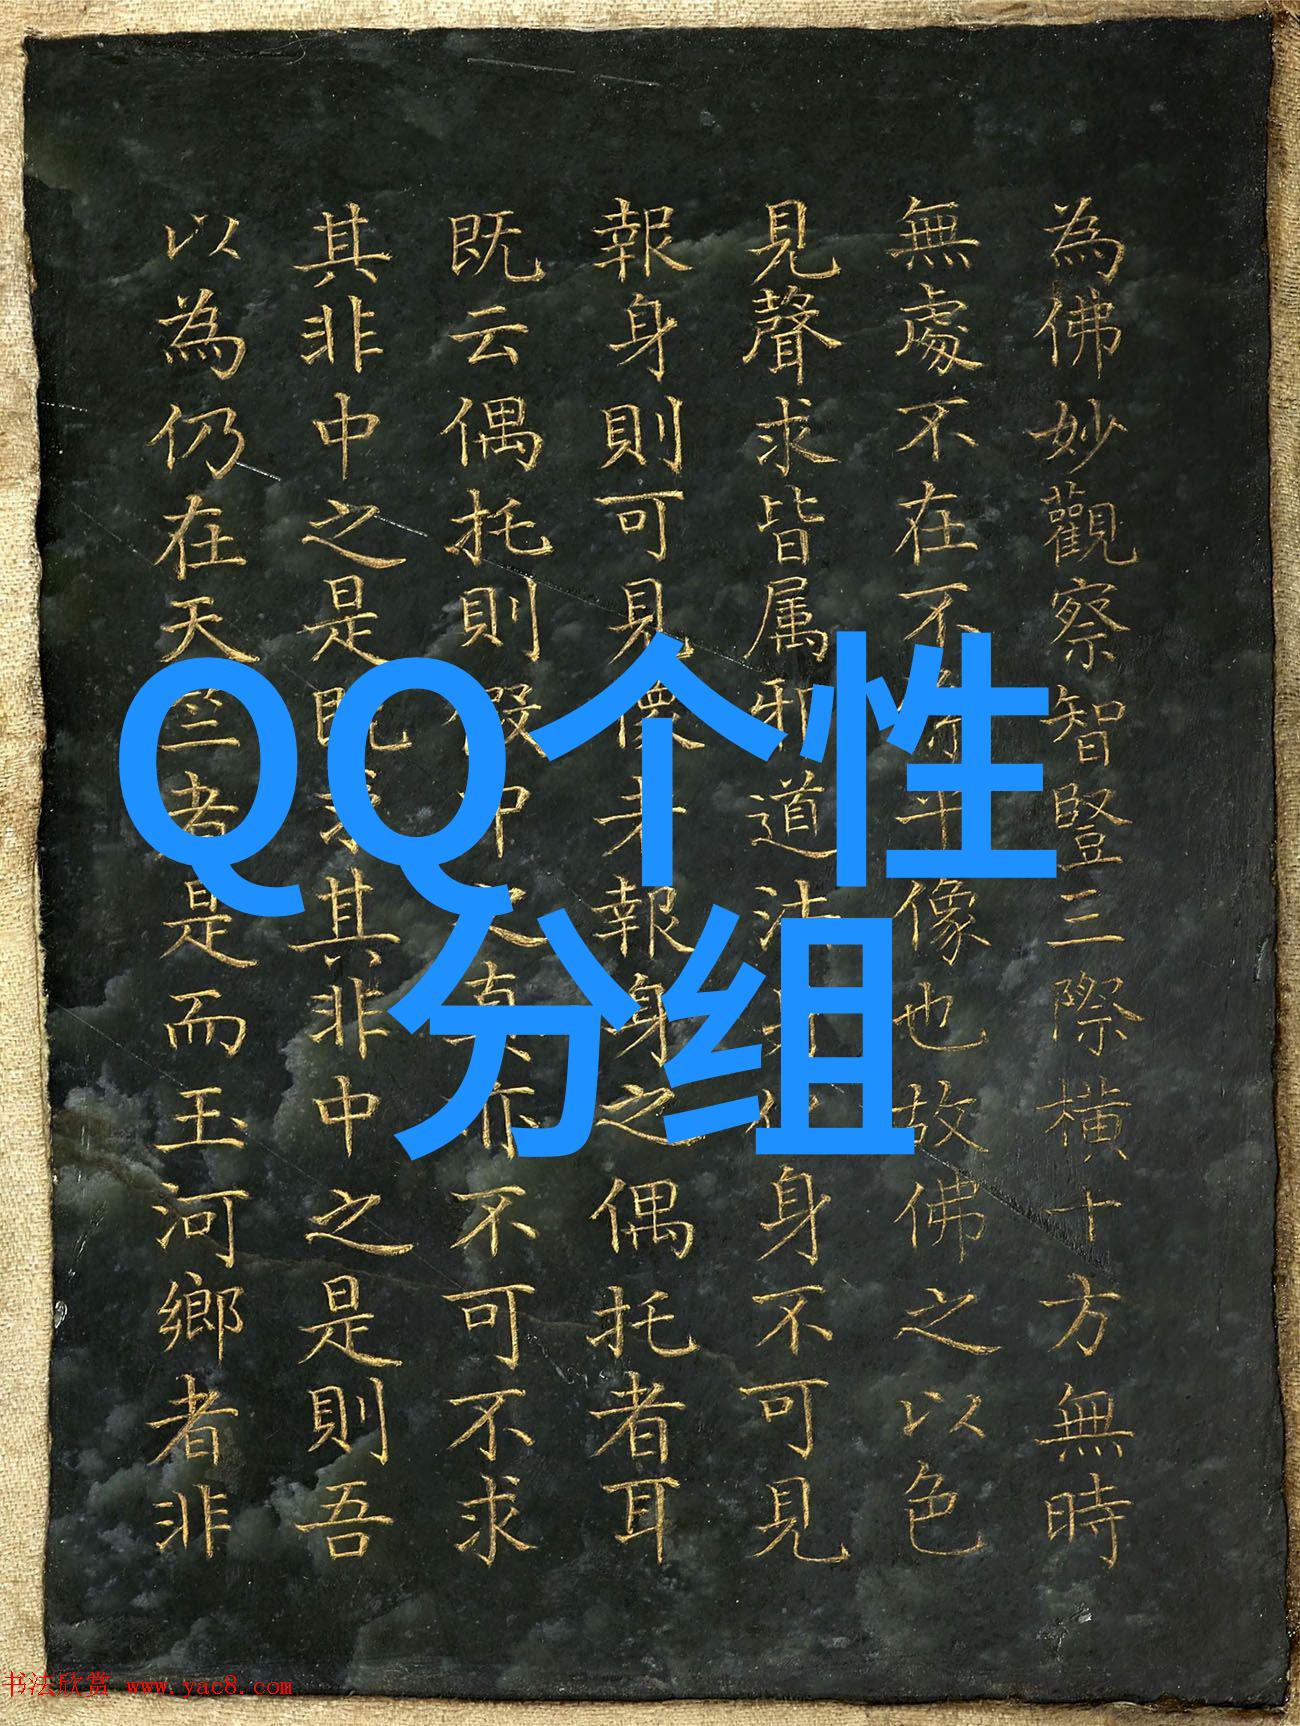 為佛妙觀察智豎三際横十方無時
無處不在不像也故佛之以色
見聲求皆属邪道法身不可見
報身則可見報身之偶托者耳
既云偶托則假真亦不可不求
其非中之是既求其非中之是則吾
以為仍在天竺者是而玉河鄉者非
QQ个性
分组
书法欣赏 www.yac8.com